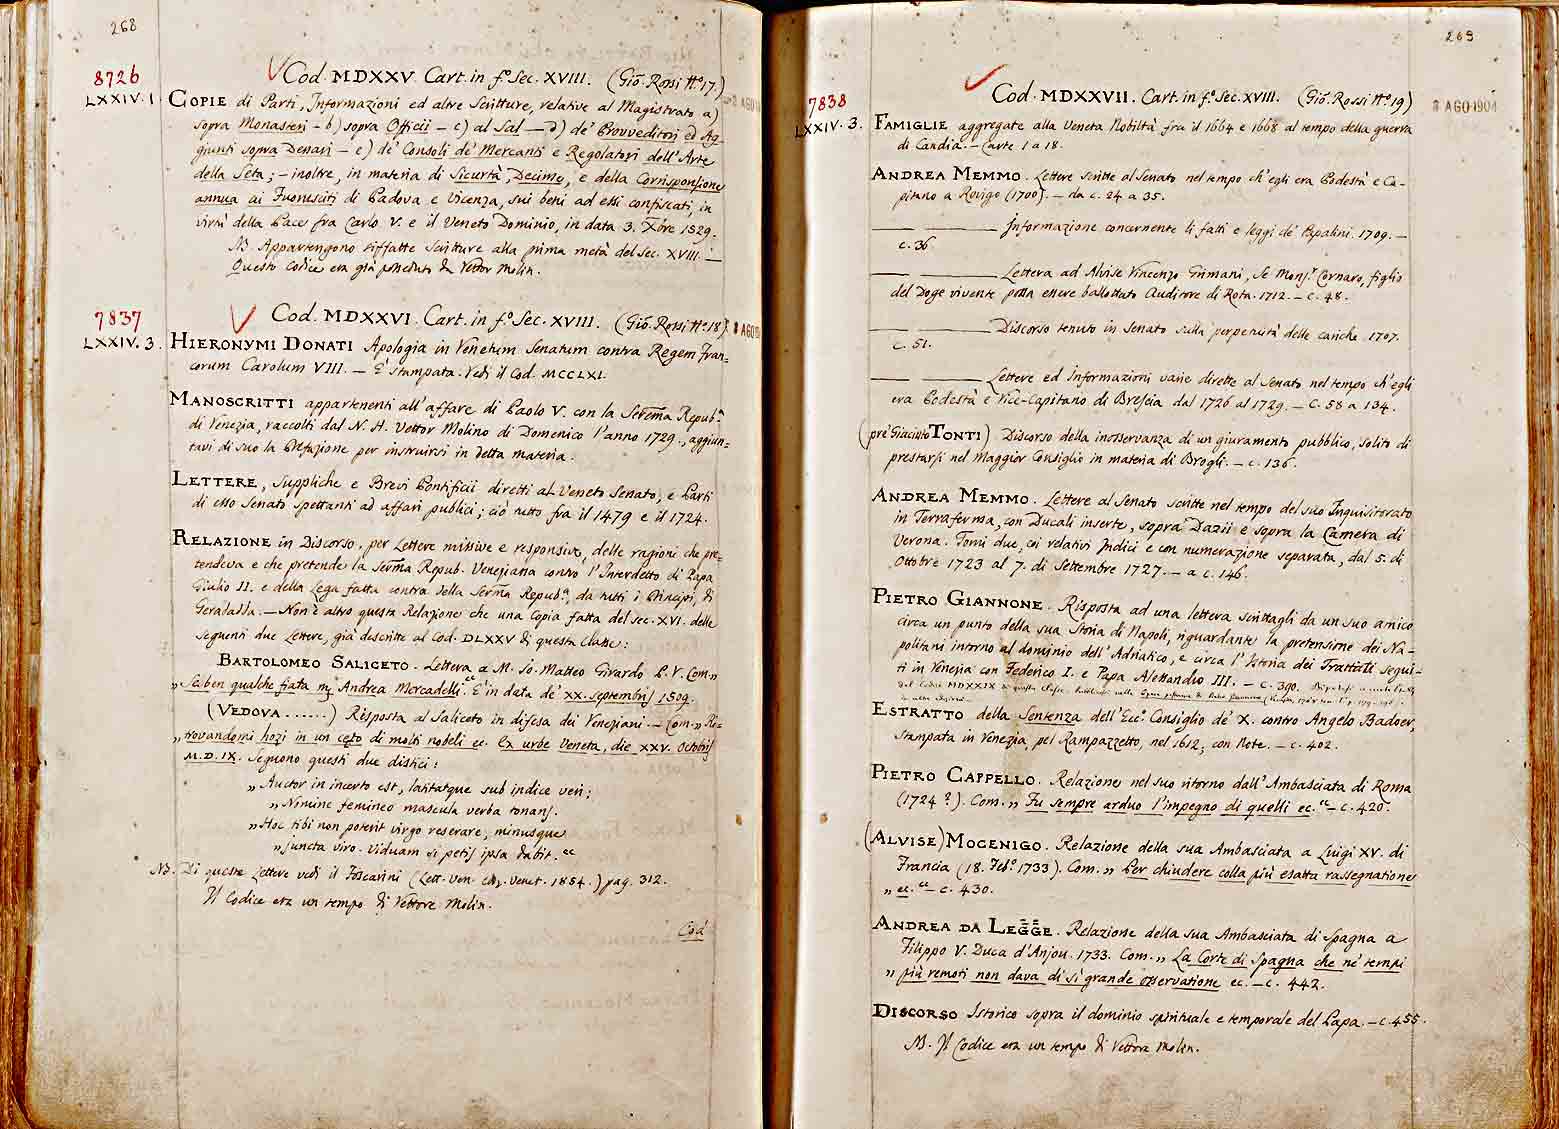 268
8726
LXXIV. 1
Cod. MDXXV. Cart. in f.º Sec. XVIII. (Gio. Rossi Nº 17.)
COPIE di Parti, Informazioni ed altre Scritture, relative al Magistrato a)
sopra Monasteri - b) sopra Officii - c) al Sal - d) de' Provveditori ed Ag-
giunti sopra Denari - e) de' Consoli de' Mercanti e Regolatori dell'Arte
della Seta; - inoltre, in materia di Sicurtà, Decime, e della Corrisponsione
annua ai Fuorusciti di Padova e Vicenza, sui beni ad essi confiscati, in
virtù della Pace fra Carlo V. e il Veneto Dominio, in data 3. Xbre 1529.
N. Appartengono siffatte Scritture alla prima metà del Sec. XVIII. —
Questo Codice era già posseduto da Vettor Molin.
7837
LXXIV. 3.
Cod. MDXXVI. Cart. in f.º Sec. XVIII. (Gio. Rossi Nº 18)
HIERONYMI DONATI Apologia in Venetum Senatum contra Regem Fran-
corum Carolum VIII. — E' stampata. Vedi il Cod. MCCLXI.
MANOSCRITTI appartenenti all'affare di Paolo V. con la Serēma Repub.ª
di Venezia, raccolti dal N. H. Vettor Molino di Domenico l'anno 1729., aggiun-
tavi di suo la Prefazione per instruirsi in detta materia.
LETTERE, Suppliche e Brevi Pontificii diretti al Veneto Senato, e Parti
di esso Senato spettanti ad affari publici; ciò tutto fra il 1479 e il 1724.
RELAZIONE in Discorso, per Lettere missive e responsive, delle ragioni che pre-
tendeva e che pretende la Serma Repub. Veneziana contro l'Interdetto di Papa
Giulio II. e della Lega fatta contra della Serma Repub.ª, da tutti i Principi, di
Geradadda. — Non è altro questa Relazione che una Copia fatta del sec. XVI. delle
seguenti due Lettere, già descritte al Cod. DLXXV di questa Classe:
BARTOLOMEO SALICETO. Lettera a M. Zo. Matteo Girardo P. V. Com.,,
,, Seben qualche fiata mʒ Andrea Mercadelli.ᶜᶜ E' in data de' XX. Septembris 1509.
(VEDOVA ......) Risposta al Saliceto in difesa dei Veneziani. — Com.,, Ri-
,, trovandomi hozi in un ceto di molti nobeli ec. Ex urbe Veneta, die XXV. Octobris
M.D.IX. Seguono questi due distici:
,, Auctor in incerto est, latitatque sub indice veri;
,, Nimine femineo mascula verba tonans.
,, Hoc tibi non poterit virgo reserare, minusque
,, Juncta viro. Viduam si petis ipsa dabit.ᶜᶜ
N. Di queste Lettere vedi il Foscarini (Lett. Ven. ediz. Venet. 1854.) pag. 312.
Il Codice era un tempo di Vettore Molin.
Cod
269
7838
LXXIV. 3.
Cod. MDXXVII. Cart. in f.º Sec. XVIII. (Gio. Rossi Nº 19)
AGO 1904
FAMIGLIE aggregate alla Veneta Nobiltà fra il 1664 e 1668 al tempo della guerra
di Candia. — Carte 1 a 18.
ANDREA MEMMO. Lettere scritte al Senato nel tempo ch'egli era Podestà e Ca-
pitanio a Rovigo (1700). — da c. 24 a 35.
—— —— Informazione concernente li fatti e leggi de' Papalini. 1709. —
c. 36
—— —— Lettera ad Alvise Vincenzo Grimani, Se Mons.r Cornaro, figlio
del Doge vivente possa essere ballottato Auditore di Rota. 1712. — c. 48.
—— —— Discorso tenuto in Senato sulla perpetuità delle cariche 1707.
c. 51.
—— —— Lettere ed Informazioni varie dirette al Senato nel tempo ch'egli
era Podestà e Vice-Capitano di Brescia dal 1726 al 1729. — C. 58 a 134.
(pre' Giacinto TONTI). Discorso della inosservanza di un giuramento pubblico, solito di
prestarsi nel Maggior Consiglio in materia di Brogli. — c. 136.
ANDREA MEMMO. Lettere al Senato scritte nel tempo del suo Inquisitorato
in Terraferma, con Ducali inserte, sopra Dazii e sopra la Camera di
Verona. Tomi due, coi relativi Indici e con numerazione separata, dal 5. di
Ottobre 1723 al 7. di Settembre 1727. — a c. 146.
PIETRO GIANNONE. Risposta ad una lettera scrittagli da un suo amico
circa un punto della sua Storia di Napoli, riguardante la pretensione dei Na-
politani intorno al dominio dell'Adriatico, e circa l'Istoria dei Trattati segui-
ti in Venezia con Federico I. e Papa Alessandro III. — c. 390.
ESTRATTO della Sentenza dell'Ecc.º Consiglio de' X. contro Angelo Badoer,
stampata in Venezia pel Rampazzetto, nel 1612, con Note. — c. 402.
PIETRO CAPPELLO. Relazione nel suo ritorno dall'Ambasciata di Roma
(1724?). Com. ,, Fu sempre arduo l'impegno di quelli ec.ᶜᶜ — c. 420.
(ALVISE) MOCENIGO. Relazione della sua Ambasciata a Luigi XV. di
Francia (18. Feb.º 1733). Com. ,, Per chiudere colla più esatta rassegnatione
,, ec.ᶜᶜ c. 430.
ANDREA DA LEGGE. Relazione della sua Ambasciata di Spagna a
Filippo V. Duca d'Anjou. 1733. Com. ,, La Corte di Spagna che ne' tempi
,, più remoti non dava di sì grande osservatione ec. — c. 442.
DISCORSO Istorico sopra il dominio spirituale e temporale del Papa. — c. 455.
N. Il Codice era un tempo di Vettore Molin.